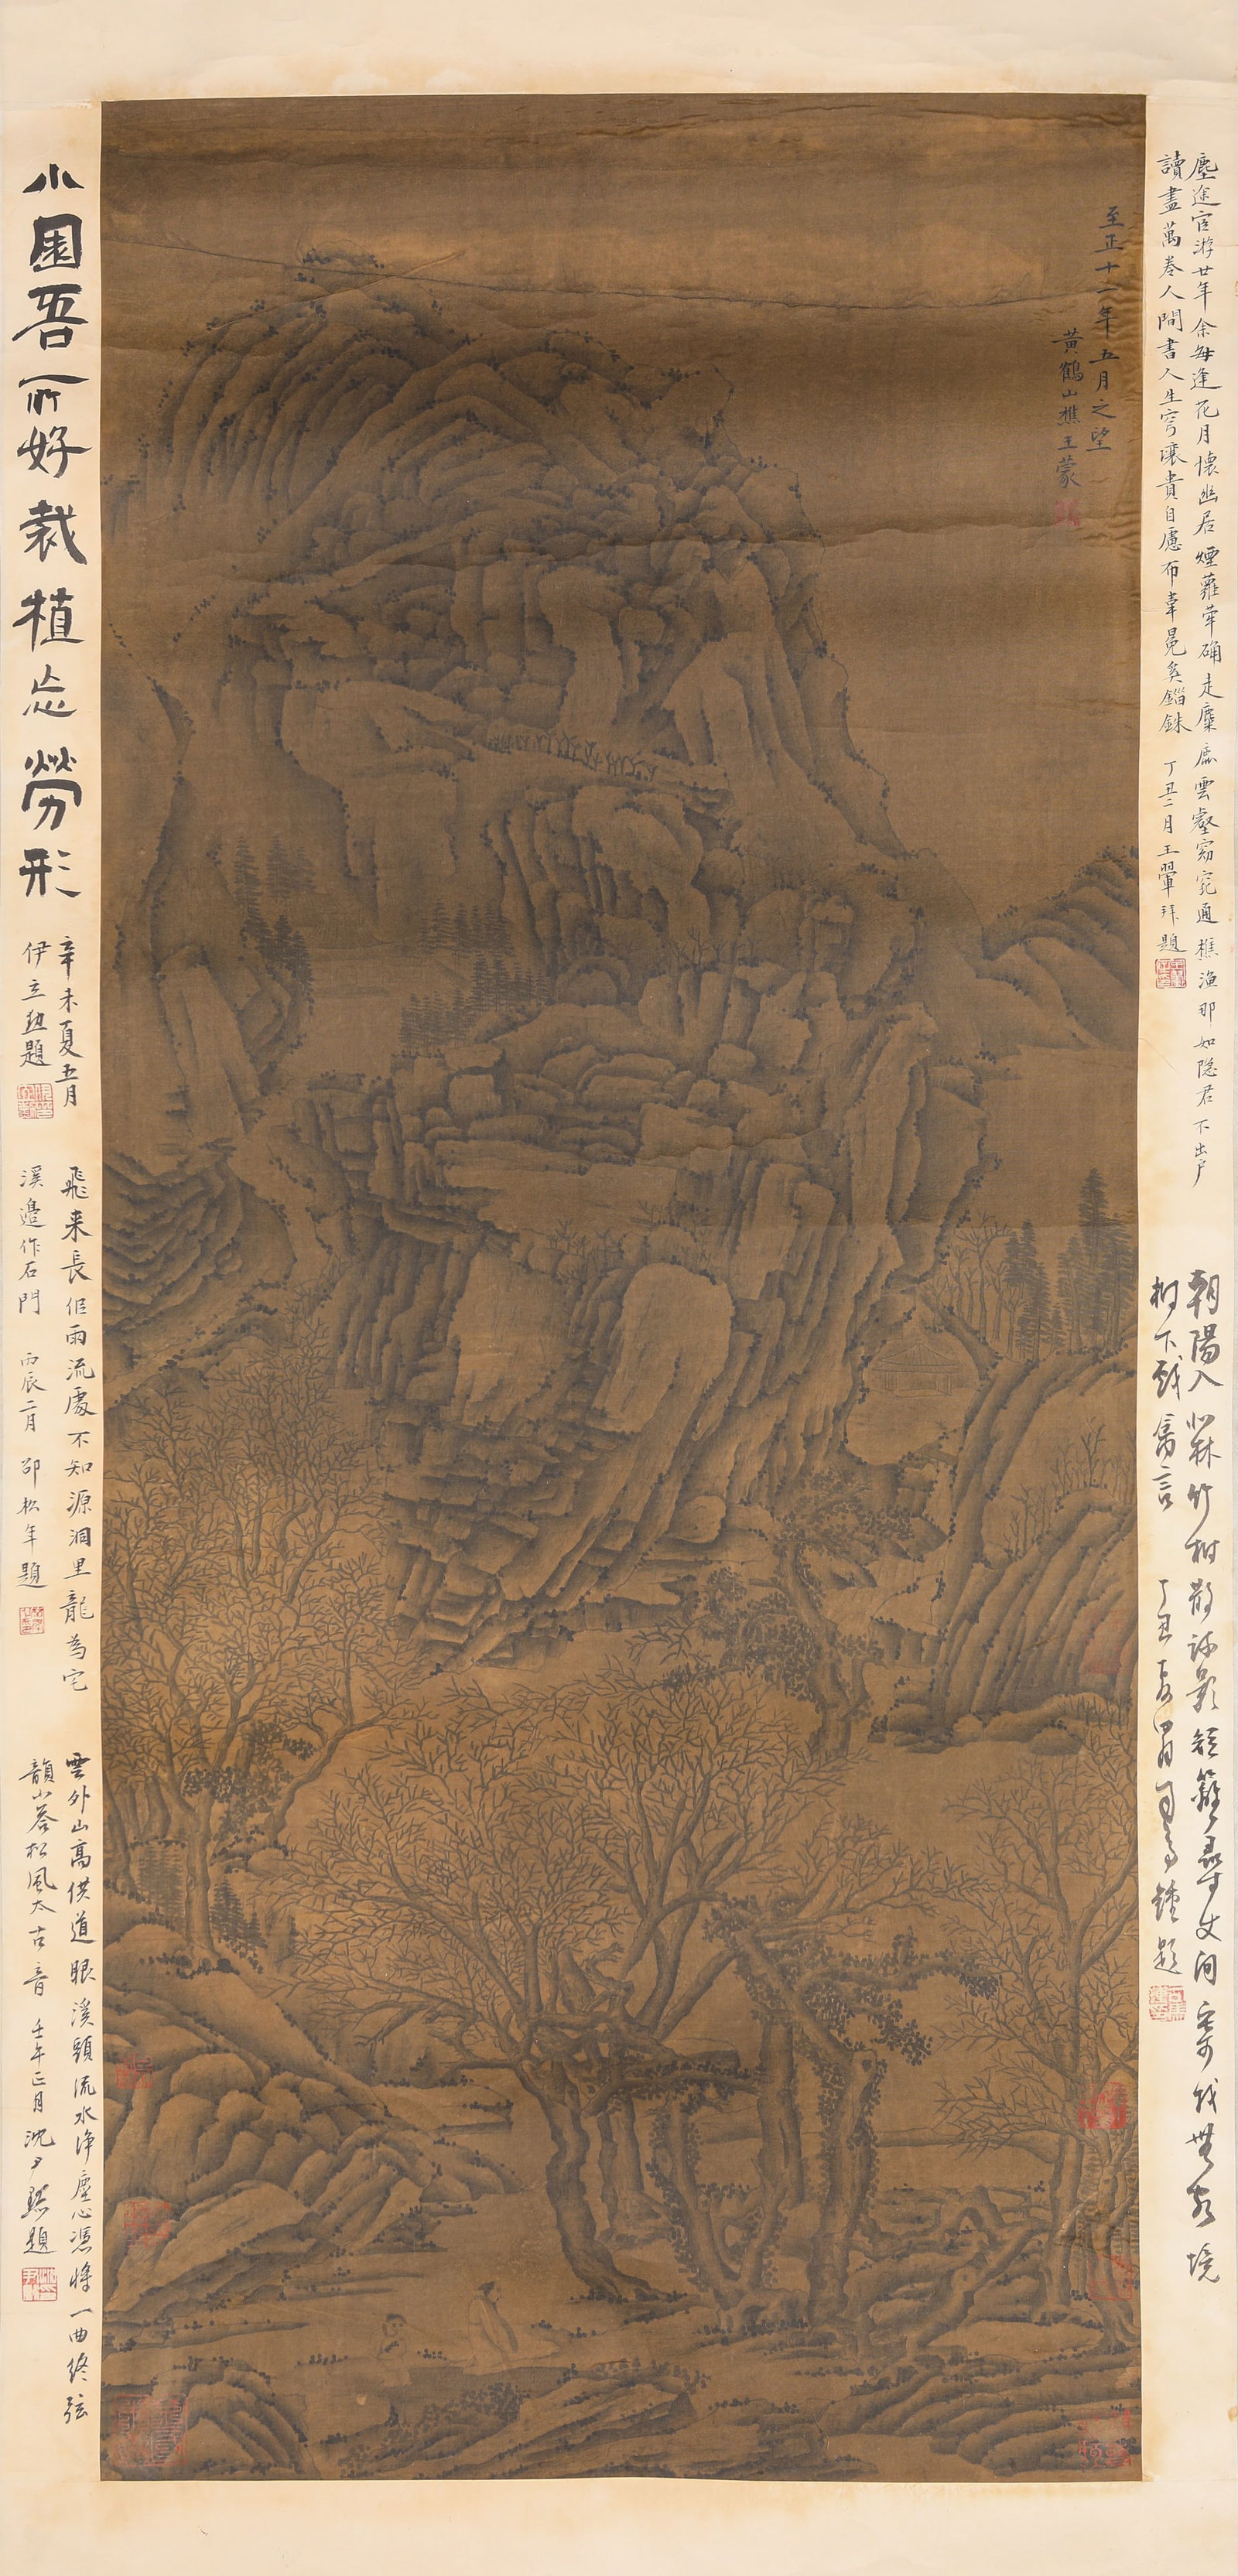 塵途宦游廿年余每逢花月懷幽居煙蘿犖确走麋鹿雲壑窈窕通樵漁那如隱君不出戶
讀盡萬卷人間書人生穹壤貴自適布韋冕奚錙銖
丁丑二月王翬拜題
朝陽入北林竹樹散疏影短籬尋丈間寄我無窮境
丁丑
題
至正十二年五月之望
黃鶴山樵王蒙
小園吾所好栽植忘勞形
辛未夏五月
伊立勳題
飛来長作雨流處不知源洞里龍為宅
溪邊作石門
丙辰二月 邵松年題
雲外山高供道眼溪頭流水淨塵心憑將一曲終弦
韻小答松風太古音
壬午正月沈尹默題